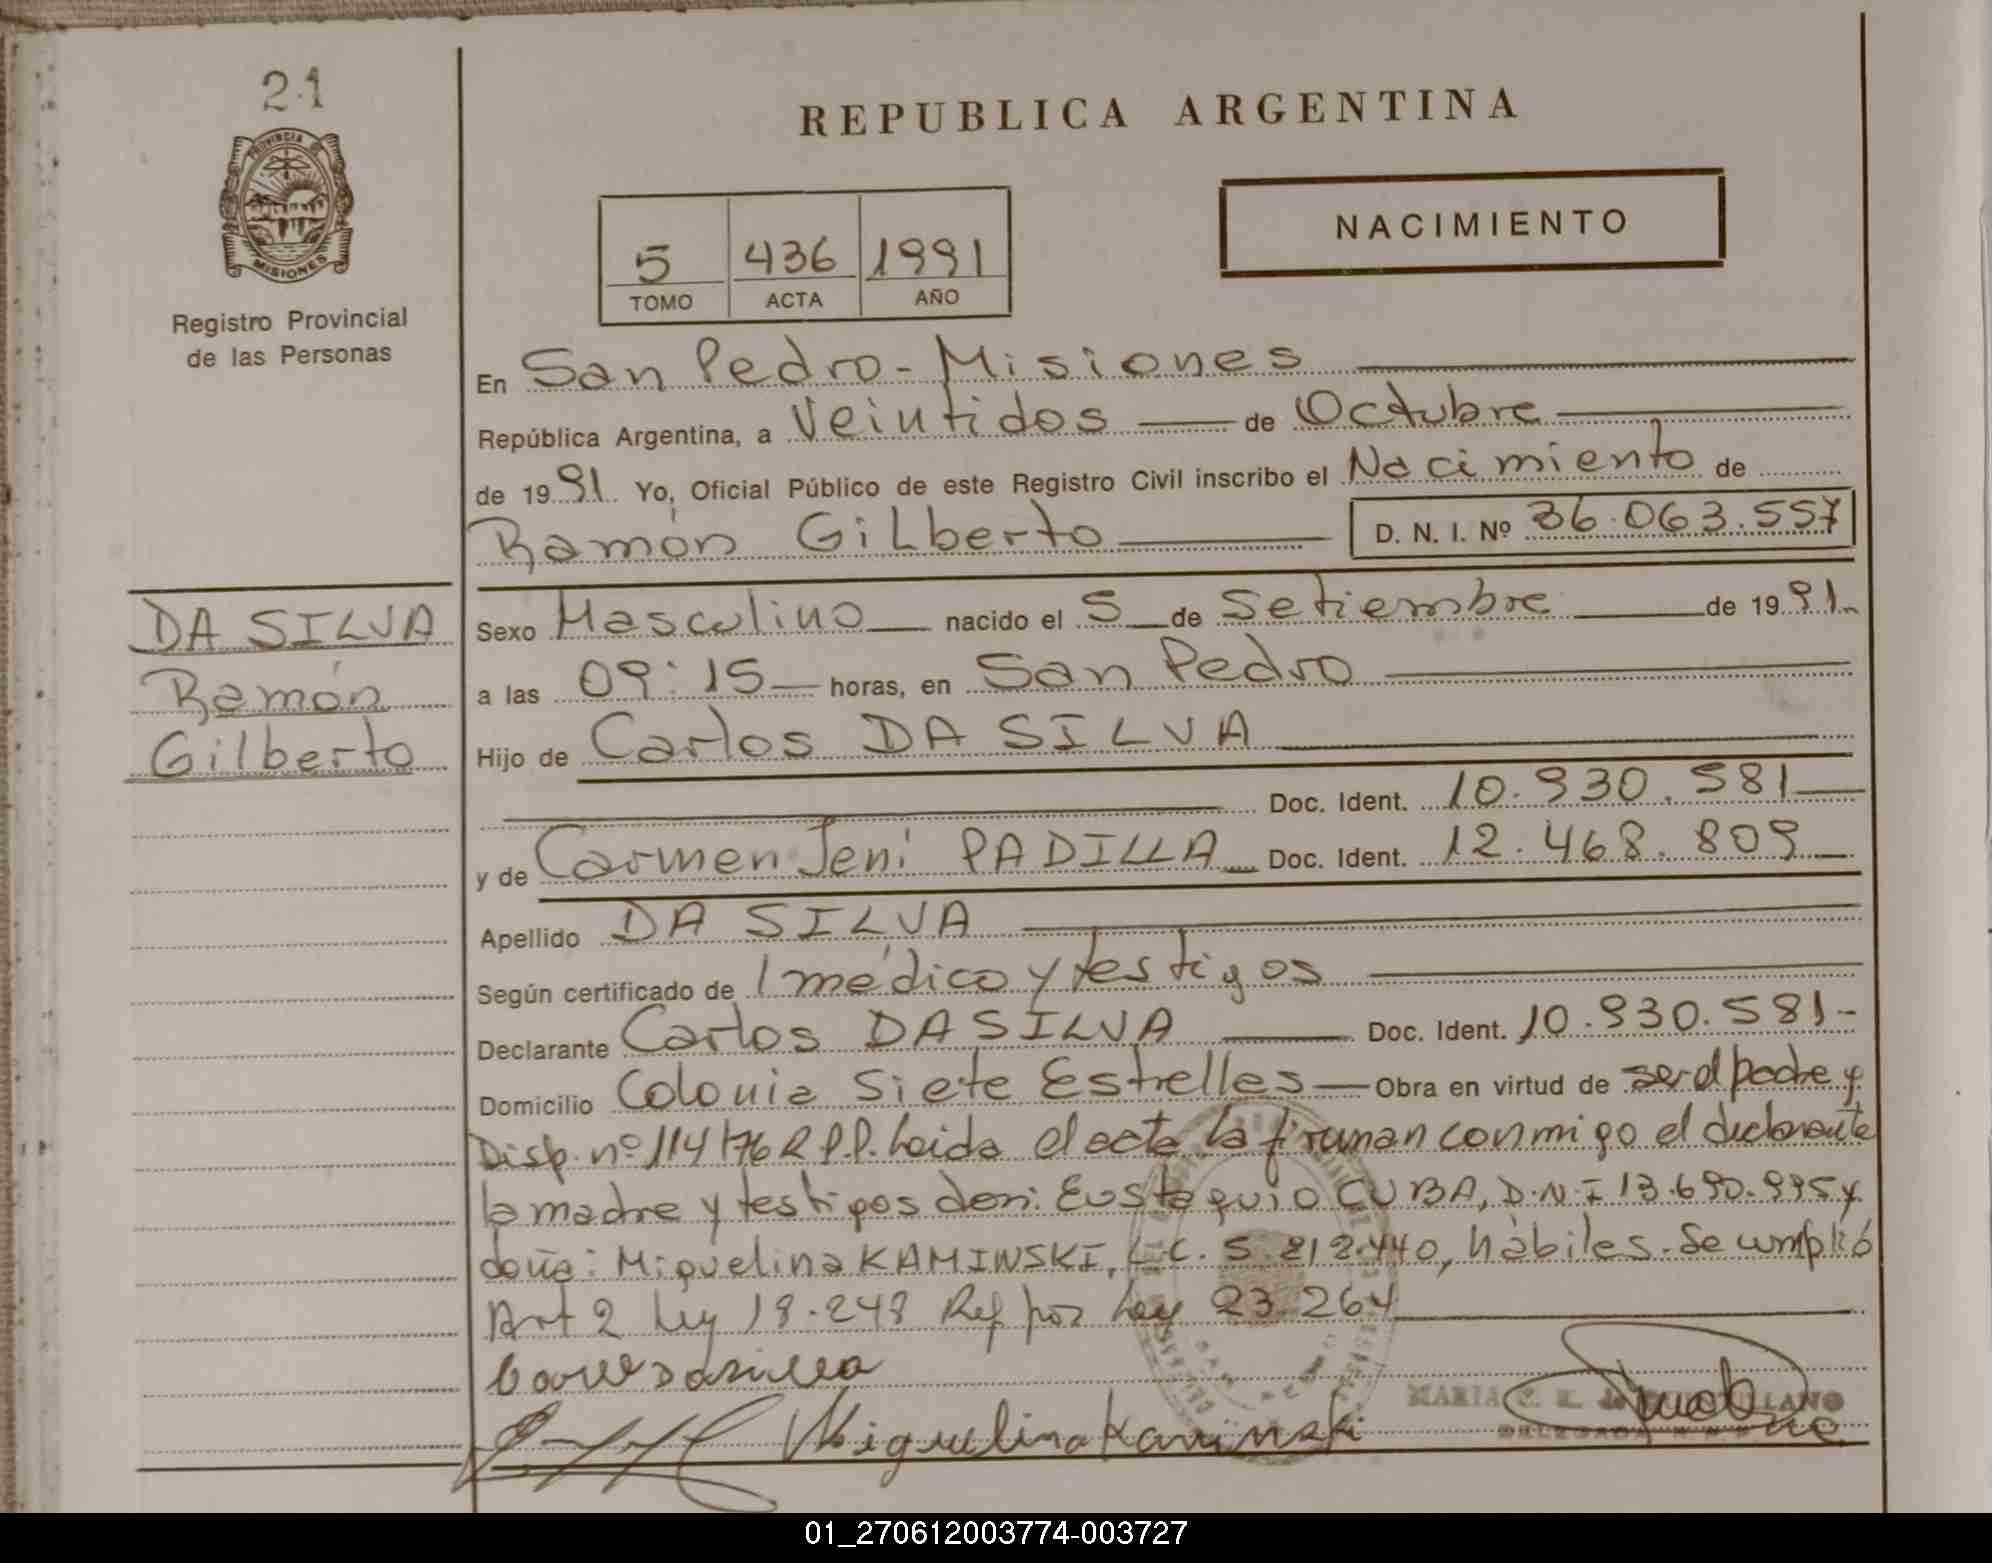 21
PROVINCIA D
MISIONES
Registro Provincial
de las Personas
REPUBLICA ARGENTINA
NACIMIENTO
5 436 1991
TOMO ACTA AÑO
En San Pedro - Misiones
República Argentina, a Veintidos de Octubre
de 1991 Yo, Oficial Público de este Registro Civil inscribo el Nacimiento de
Ramón Gilberto D. N. I. Nº 36.063.557
DA SILVA
Ramón
Gilberto
Sexo Masculino nacido el 5 de Setiembre de 1991
a las 09:15 horas, en San Pedro
Hijo de Carlos DA SILVA
Doc. Ident. 10.930.581
y de Carmen Jeni PADILLA Doc. Ident. 12.468.809
Apellido DA SILVA
Según certificado de 1 médico y testigos
Declarante Carlos DA SILVA Doc. Ident. 10.930.581-
Domicilio Colonia Siete Estrelles Obra en virtud de ser el padre y
Disp. nº 114/76 R.P.P. Leida el acta la firman conmigo el declarante
la madre y testigos don: Eustaquio CUBA, D.N.I 13.690.995 y
doña: Miguelina KAMINSKI, L.C. 5.212.440, hábiles. Se cumplió
Art 2 Ley 18.248 Ref por Ley 23.264
Miguelina Kaminski
MARIA C. K. de
DELEGADA
01_270612003774-003727